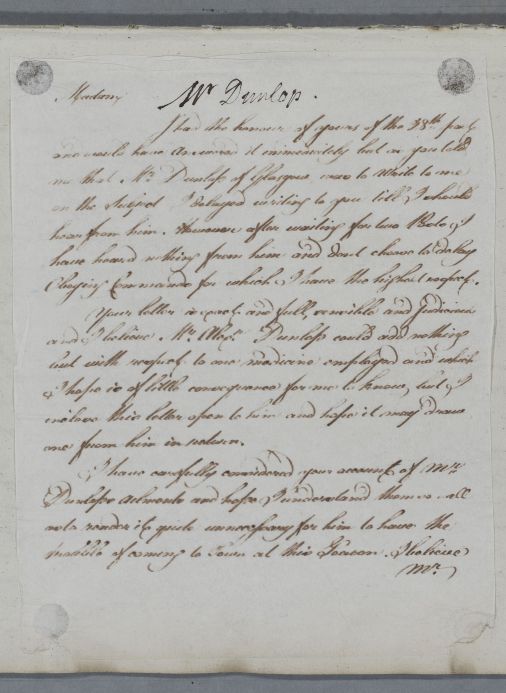 Madam,
Mr Dunlop.
I had the honour of yours of the 28th past
and would have answered it immediately but as you told
me that Mr. Dunlop of Glasgow was to write to me
on the Subject I delayed writing to you till I should
hear from him. However after waiting for two Posts I
have heard nothing from him and dont choose to delay
Obeying Commands for which I have the highest respect.
Your letter is exact and full, sensible and Judicious
and I believe Mr. Alexr. Dunlop could add nothing
but with respect to one medicine employed and which
I hope is of little consequence for me to know, but I
inclose this letter open to him and hope it may draw
one from him in return.
I have carefully considered your account of Mr.
Dunlops ailments and hope I understand them so well
as to render it quite unnecessary for him to have the
trouble of coming to Town at this Season. I believe
Mr.